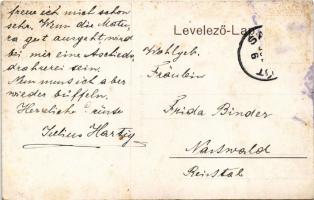 freue ich mich schon
sehr. Wenn die Matu-
ra gut ausgeht, wird
bei mir eine Aschieds
drahrerei sein.
Nun muss ich aber
wieder büffeln.
Herzliche Grüsse
Julius Hartig
Levelező-La
Wohlgeb.
Fräulein
Frida Binder
Nasswald
Reisstal